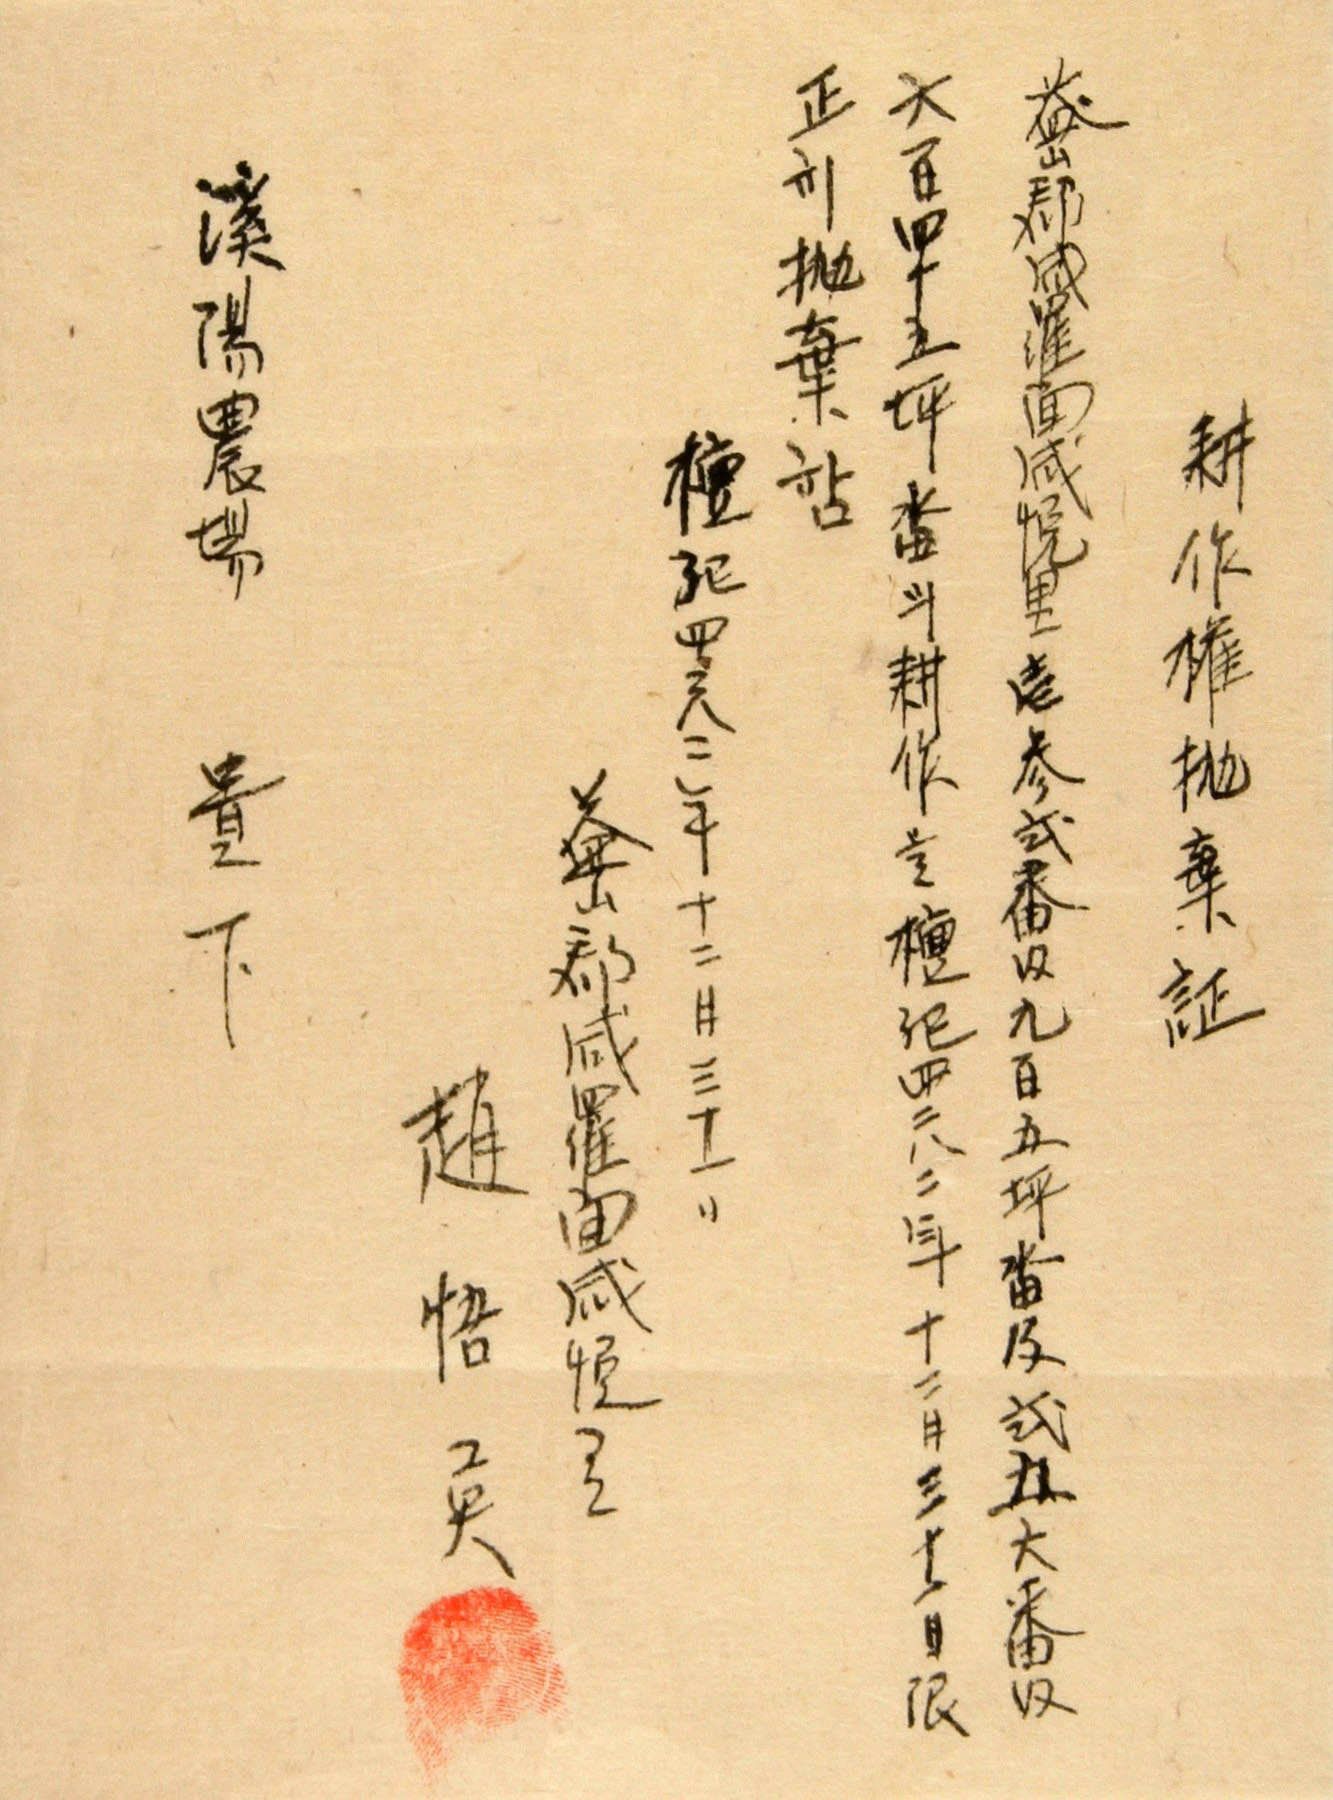 耕作權抛棄証
益山郡咸羅面咸悅里壱参弐番以九百五坪畓及弐五六番以
六百四十五坪畓斗耕作은檀記四二八二年十二月三十一日限
正히抛棄함
檀記四二八二年十二月三十一日
益山郡咸羅面咸悅里
趙悟英
溪陽農場 貴下